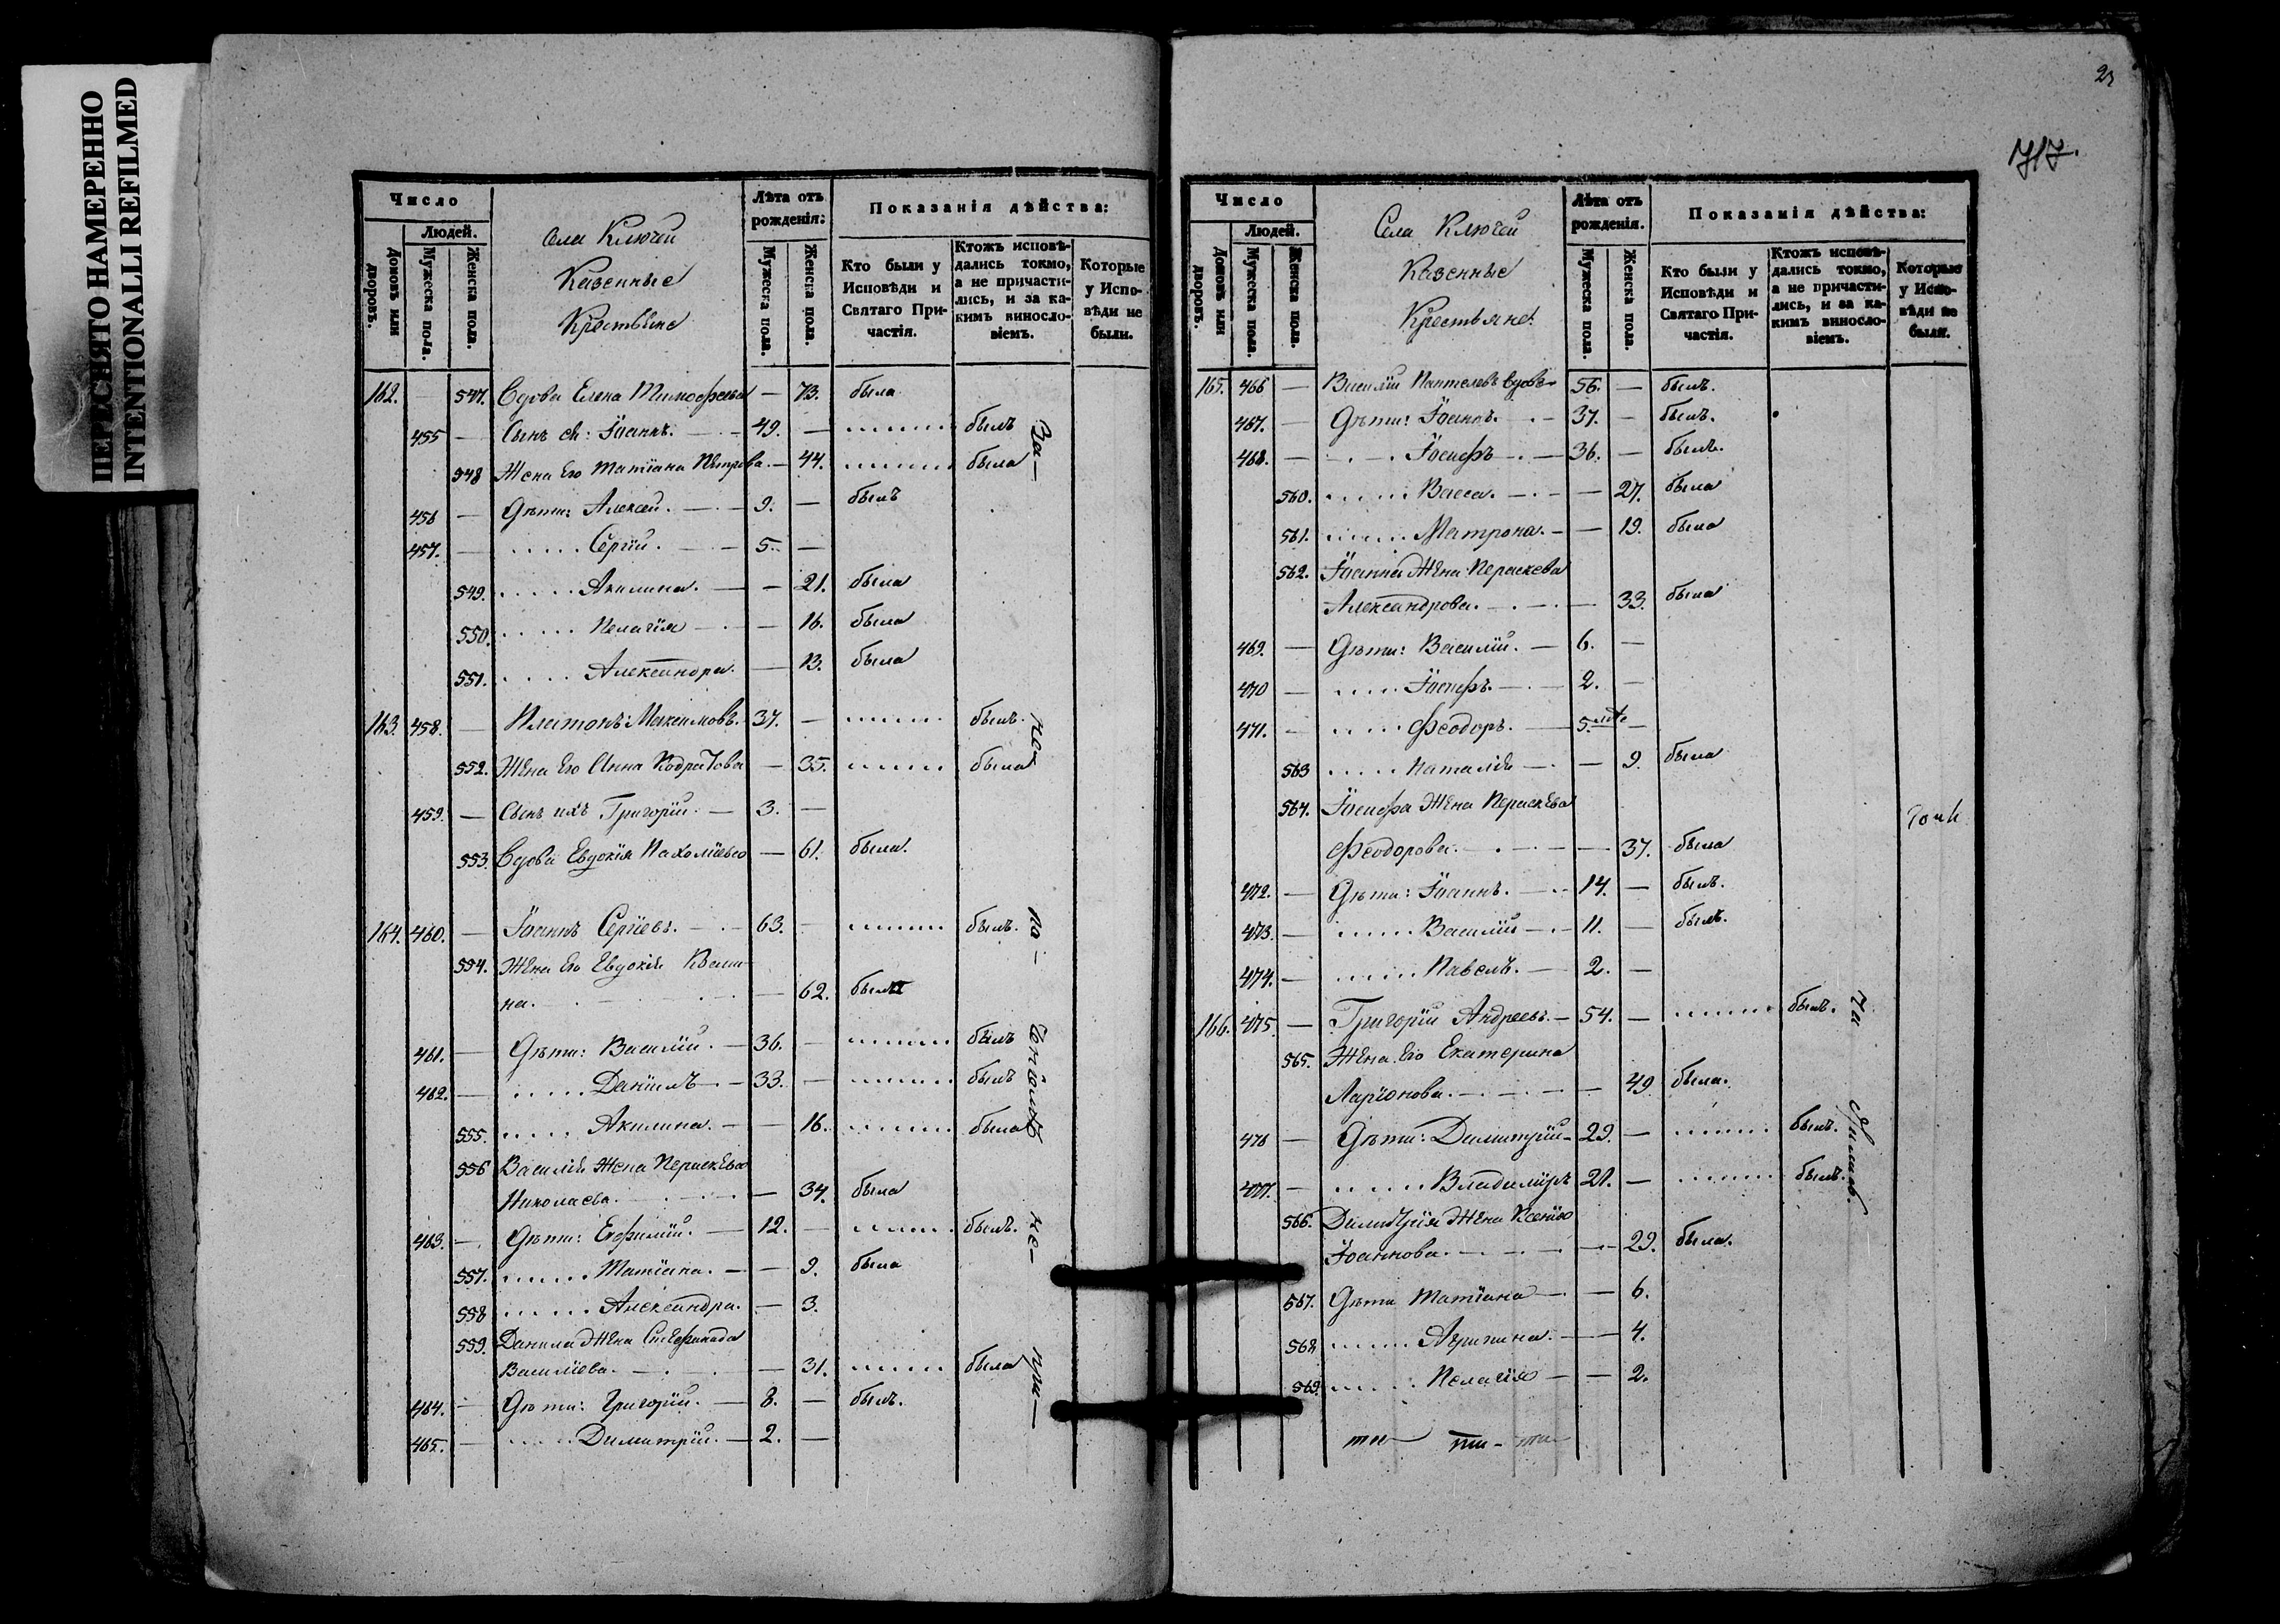 ПЕРЕСНЯТО НАМЕРЕННО
INTENTIONALLI REFILMED
Число
Людей.
Домовъ или дворовъ.
Мужеска пола.
Женска пола.
Села Ключей
Казенные
Крестьяне
Лѣта отъ рожденія:
Мужеска пола.
Женска пола.
Показанія дѣйства:
Кто были у Исповѣди и Святаго Причастія.
Ктожъ исповѣдались токмо, а не причастились, и за какимъ винословіемъ.
Которые у Исповѣди не были.
162. — 547. Вдова Елена Тимофеева — 73. была
455 — Сынъ ея: Іоаннъ. — 49. — былъ
548 Жена Его Татіана Петрова — 44. была
456 — Дѣти: Алексей. — 9. — былъ
457. — Сергій. — 5. —
549. Акилина. — 21. была
550. Пелагія — 16. была
551. Александра. — 13. была
163. 458. — Платонъ Максимовъ. 37. — былъ.
552. Жена Его Анна Кодратова — 35. была
459. — Сынъ ихъ Григорій. — 3. —
553. Вдова Евдокія Пахоміева — 61. была.
164. 460. — Іоаннъ Сергіевъ. — 63. — былъ.
554. Жена Его Евдокія
на. — 62. была
461. — Дѣти: Василій. — 36. — былъ
462. — Даніилъ — 33. — былъ
555. Акилина. — 16. была
556 Василія Жена Параскева
Николаева. — 34. была
463. — Дѣти: Евфимій. — 12. — былъ.
557. Татіана. — 9. была
558 Александра. — 3.
559. Данила Жена Стефанида
Василіева. — 31. была
464. — Дѣти: Григорій. — 8. — былъ.
465. — Димитрій. — 2. —
За—
не
на—
не—
при—
717.
Число
Людей.
Домовъ или дворовъ.
Мужеска пола.
Женска пола.
Села Ключей
Казенные
Крестьяне.
Лѣта отъ рожденія.
Мужеска пола.
Женска пола.
Показанія дѣйства:
Кто были у Исповѣди и Святаго Причастія.
Ктожъ исповѣдались токмо, а не причастились, и за какимъ винословіемъ.
Которые у Исповѣди не были.
165. 466 — Василій Пантелевъ вдовъ 56. — былъ.
467. — Дѣти: Іоаннъ. — 37. — былъ.
468. — Іосифъ — 36. — былъ.
560. Васса. — 27. была
561. Матрона. — 19. была
562. Іоанна Жена Параскева
Александрова. — 33. была
469. — Дѣти: Василій. — 6. —
470 — Іосифъ. — 2. —
471. — Феодоръ. — 5. —
563 Наталія — 9. была
564. Іосифа Жена Параскева
Феодорова. — 37. была
472. — Дѣти: Іоаннъ. — 14. — былъ.
473. — Василій — 11. — былъ.
474. — Павелъ. — 2. —
166. 475 — Григорій Андреевъ. — 54. — былъ.
565. Жена Его Екатерина
Ларіонова. — 49 была.
476 — Дѣти: Димитрій — 29. — былъ.
477. — Владиміръ 21. — былъ.
566. Димитрія Жена Ксенія
Іоаннова. — 29. была.
567. Дѣти Татіана — 6.
568 Агрипина. — 4.
569. Пелагія — 2.